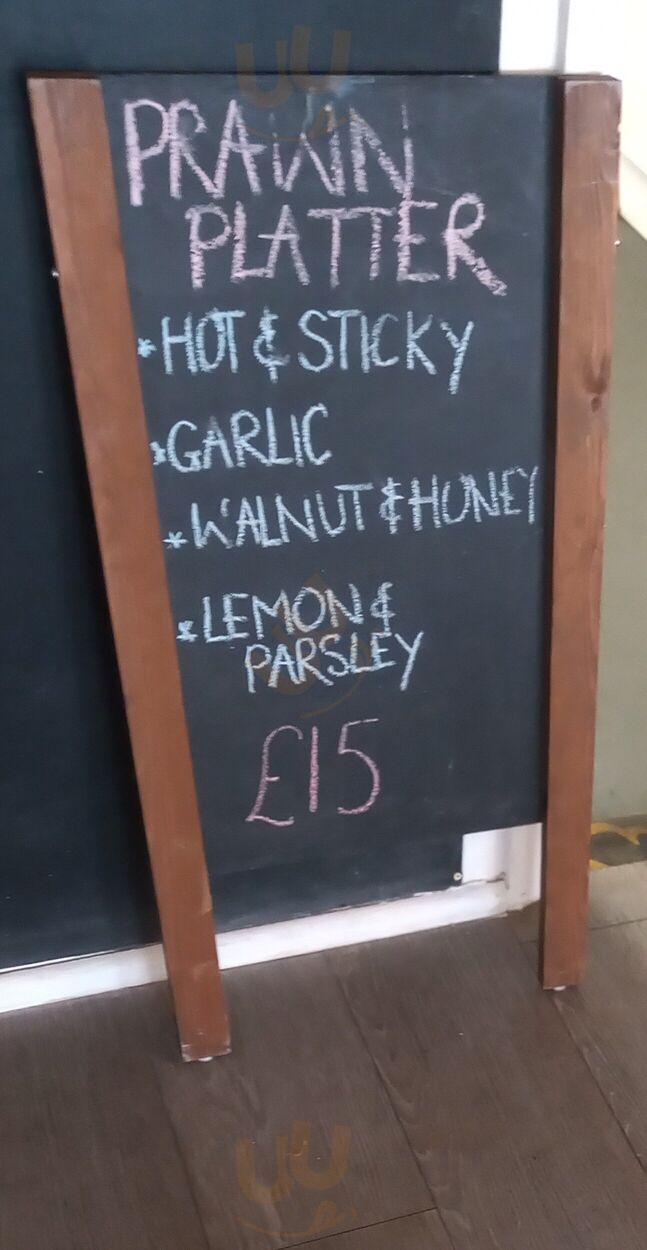 PRAWN
PLATTER
*HOT & STICKY
*GARLIC
*WALNUT & HONEY
*LEMON &
PARSLEY
£15